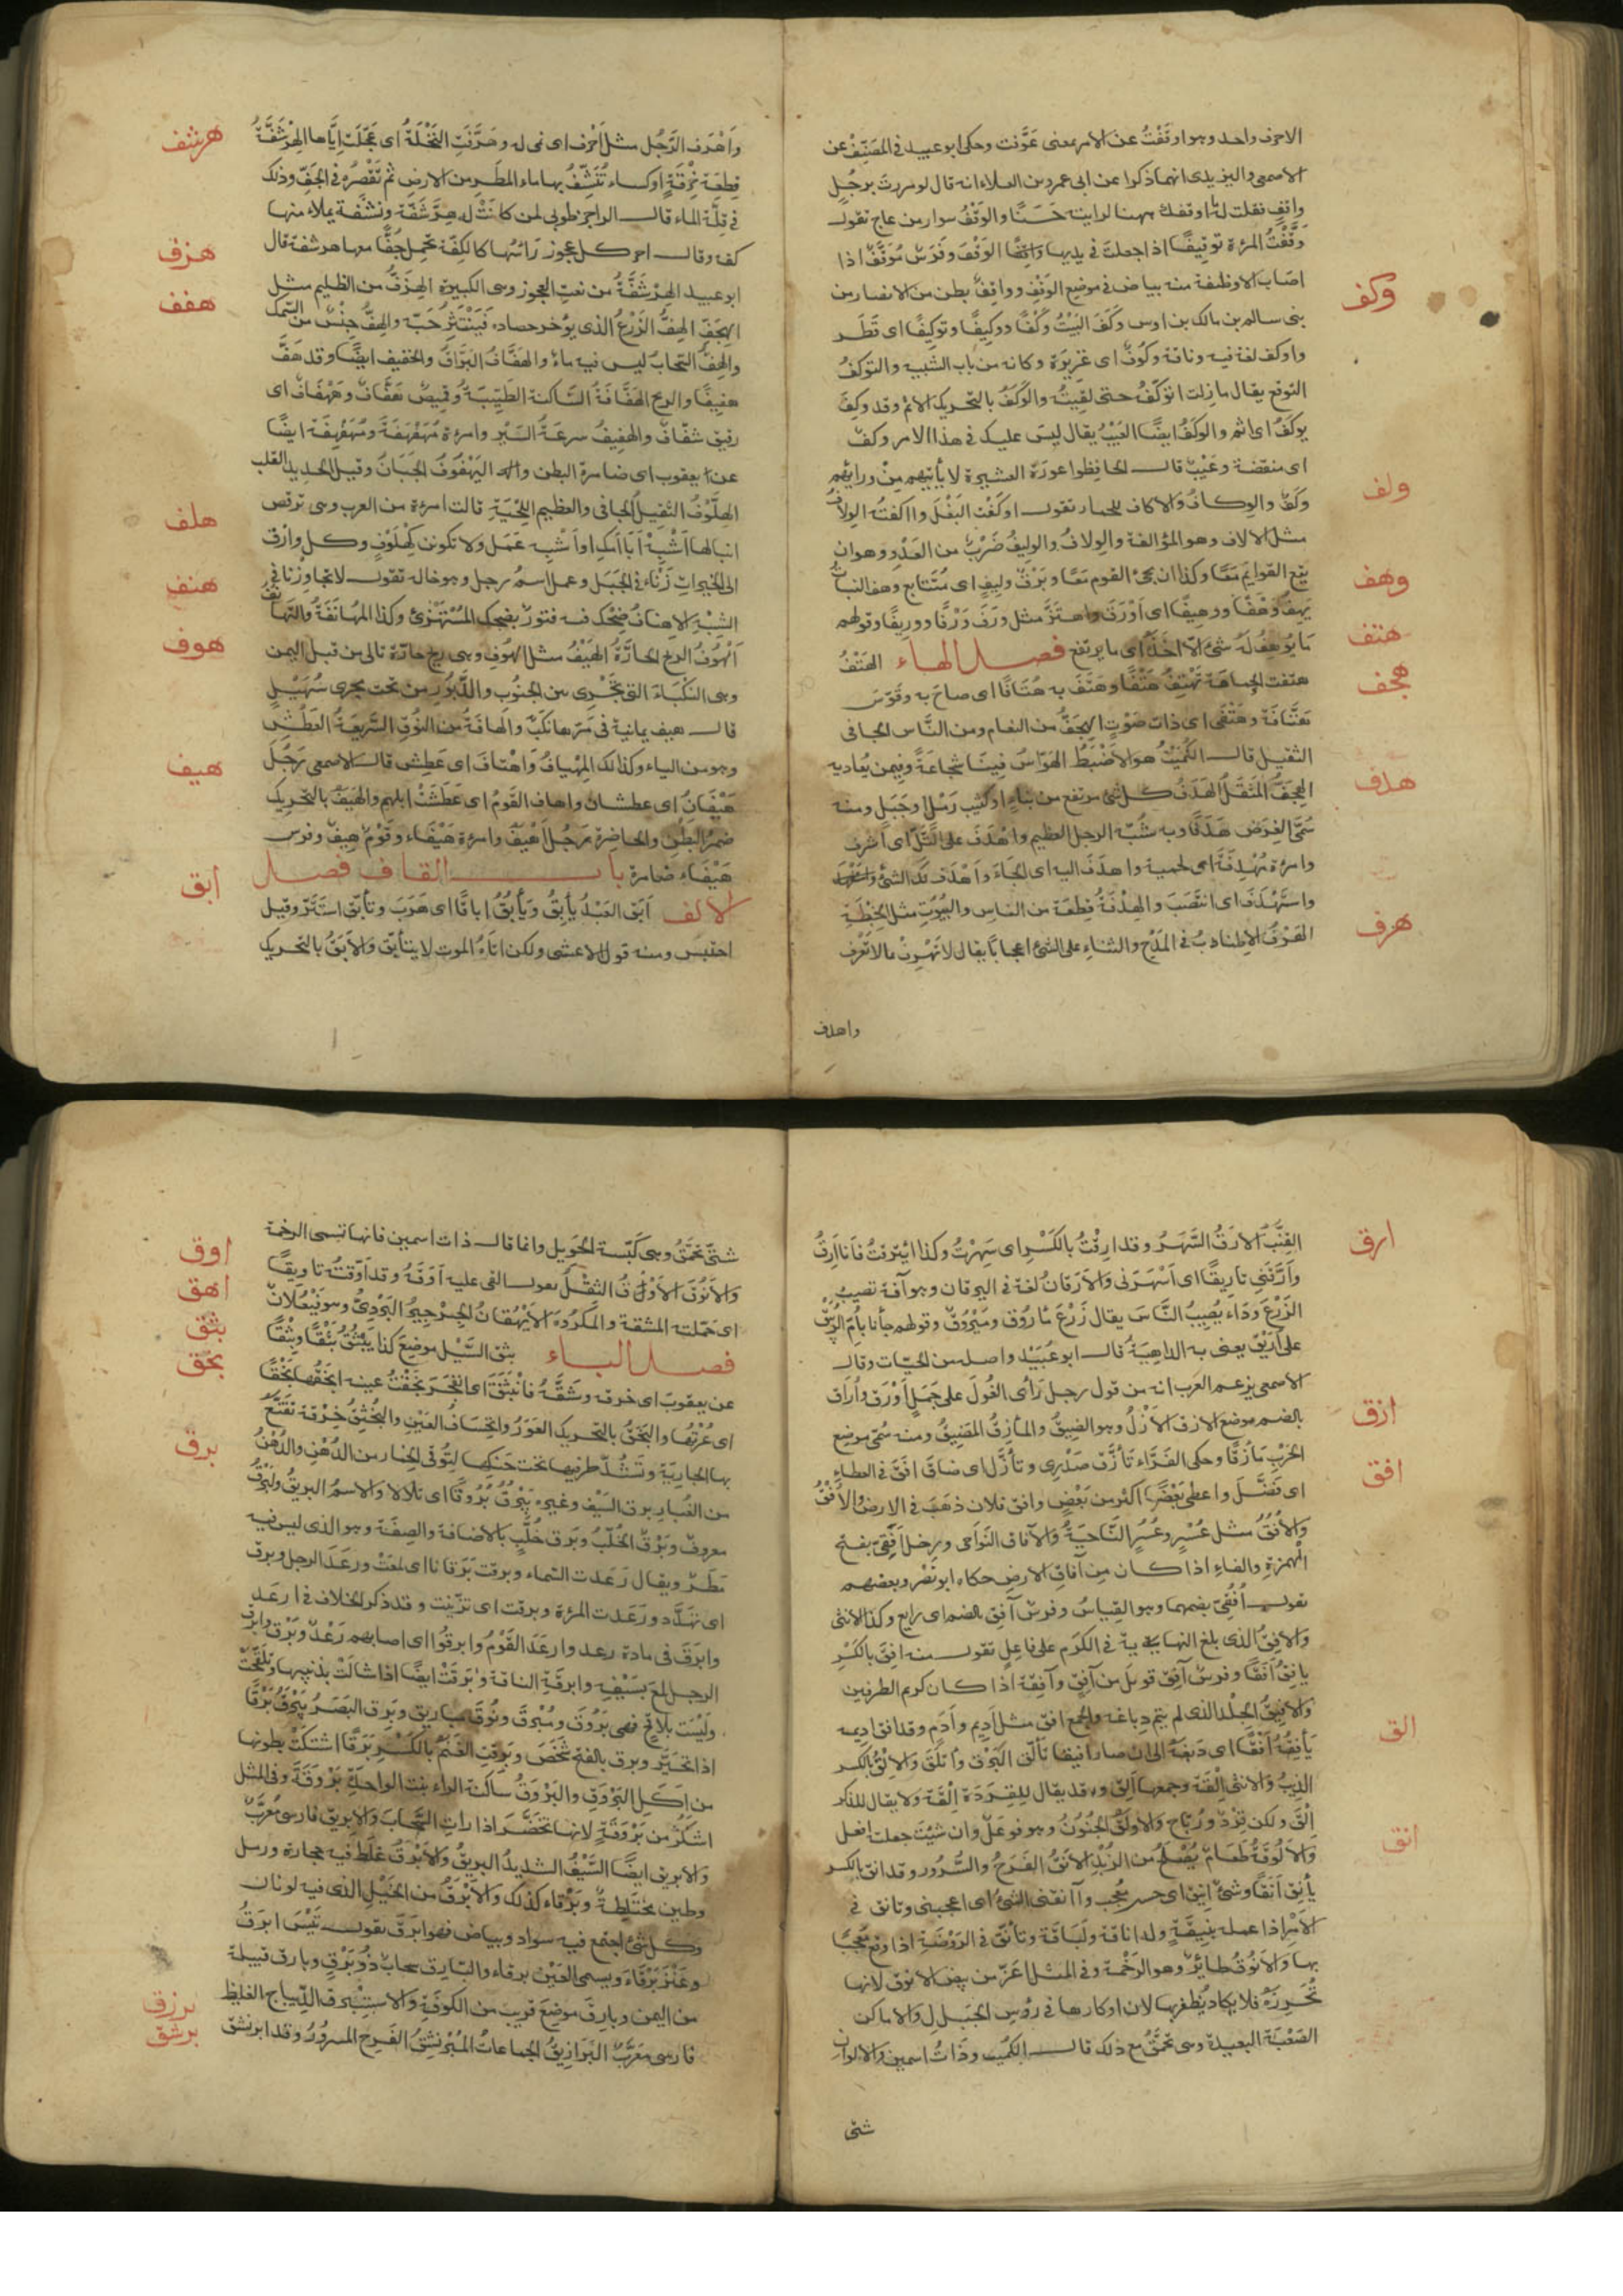 الاحرف واحد وهو اوقفت عن الامر بمعنى وحكى ابو عبيد فى المصنف عن
الاصمعى واليزيدى انهما ذكرا عن ابى عمرو بن العلاء انه قال لو مررت برجل
واقف فقلت له ما اوقفك ههنا لرايته حَسَنًا والوَقْفُ سوار من عاج تقول
وَقَّفْتُ المرءة توقيفًا اذا جعلت فى يديها الوَقْفَ وفَرَسٌ مُوَقَّفٌ اذا
اصاب الاوظفة منه بياض فى موضع الوقف وواقف بطن من الانصار من
وكف
بنى سالم بن مالك بن اوس وَكَفَ البَيْتُ وَكْفًا ووكيفًا وتوكيفًا اى قَطَر
واوكف لغة فيه وناقة وكُوفٌ اى غزيرة وكانه من باب التشبيه والتوكفُ
التوقع يقال مازلت اتوكَّفُ حتى لقيتُه والوَكَفُ بالتحريك الاثم وقد وكِفَ
يوكَفُ اى اثم والوكَفُ ايضًا العَيْبُ يقال ليس عليك فى هذا الامر وكفٌ
اى منقصة وعَيْبٌ قال الحافظوا عورة العشيرة لا يأتيهم مِنْ ورائهم
ولف
وَكَفٌ والوِكافُ والاكاف للحمار تقول اوكَفْت البَغْلَ وااكفته الوِلافُ
مثل الالاف وهو المؤالفة والوِلافُ والوليفُ ضَرْبٌ من العَدْوِ وهو ان
وهف
يقع القوايم مَعًا وكذا ان يجىء القوم مَعًا وبَرْقٌ وليفٌ اى مُتَتَابع وهف النبات
يَهِفُ وَهْفًا ووهيفًا اى اَوْرَقَ واهتَزَّ مثل ورَفَ وَرْفًا ووريفًا وقولهم
هتف
ما يُوهِفُ لَهُ شىءٌ الا اخذَهُ اى ما يرتفع فصل الهاء الهَتْفُ
هتفت الحمامة تَهْتِفُ هَتْفًا وهَتَفَ به هُتَافًا اى صاحَ به وقَوْسٌ
هجف
هَتَّافَةٌ وهَتْفَى اى ذات صَوْتٍ الهِجَفُّ من النعام ومن النَّاس الجافى
الثقيل قال الكُمَيْتُ هو الاَضْبَطُ الهَوّاسُ فينَا شَجاعَةً وفيمن يُعاديه
هدف
الهِجَفُّ المُثَقَّلُ الهَدَفُ كل شىء مرتفع من بناءٍ او كثيب رَمْلٍ او جَبَلٍ ومنه
سُمِّىَ الغَرَض هَدَفًا وبه شُبّه الرجل العظيم واَهْدَفَ على التَّلِّ اى اَشْرف
وامرءة مُهْدِفَةٌ اى لحمية واهدَفَ اليه اى لجَاءَ واَهْدَفَ لك الشىء
واستَهْدَفَ اى انتَصَبَ والهِدْفَةُ قِطعَة من الناس والبيُوتِ مثل الخِبْطَةِ
هرف
الهَرْفُ الاطناب فى المَدْحِ والثناء على الشىء اعجابًا يقال لا تَهْرِفْ بما لا تَعْرِف
واهرف
هرشف
وَاَهْرَف الرَّجُل مثل اَحْرَف اى نمى له وهَرَّفَتِ النَّخْلَةُ اى عَجَّلَتْ إِتَاءَها الهِرْشَفَّةُ
قِطعَة خِرْقَةٍ او كساء تُنَشَّفُ بها ماء المطَر من الارض ثم تُعْصَرُ فى الجُفّ وذلك
فى قِلَّة الماء قال الراجز طوبى لمن كانَتْ له هِرْشَفَّة ونَشْفَة يملاء منها
هزف
كفه وقال اخر كل عجوز رَأسُها كالكِفَّة تحمِل جُفًّا معها هرشفة قال
ابو عبيد الهِرْشَفَّةُ من نعتِ العجوز وهى الكبيرة الهِزَفُّ من الظليم مثل
هفف
الهِجَفّ الهِفُّ الزَّرْعُ الذى يؤخر حصاده فَيَنْتَثِرُ حَبّه والهِفُّ جِنْسٌ من السَّمك
والهِفُّ السَّحابُ ليس فيه ماءٌ والهَفّافُ البَرّاقُ والخفيف ايضًا وقد هَفَّ
هفيفًا والريح الهَفّافَةُ السَّاكنة الطَّيِّبَةُ وقميصٌ هَفَّافٌ وهَفْهَافٌ اى
رقيق شفّافٌ والهفيفُ سرعَةُ السَّيْر وامرءة مُهَفْهَفَة ومُهَفَّفَة ايضًا
عن يعقوب اى ضامرة البطن واليَهْفُوفُ الجَبَانُ وقيل الحديد القلب
هلف
الهِلَّوْفُ الثقيلُ الجافى والعظيم اللِّحْيَةِ قالت امرءة من العرب وهى ترقص
ابنا لها اَشْبِهْ اَبا اُمِّك او اَشْبِه عَمَل ولا تكونن كهِلَّوْفٍ وكل وارق
هنف
الى الخيرات زَنْاءً فى الجَبَل وعمل اسمُ رجل وهو خاله تقول لا تجاوزنا فى
الشِّبْه الاهنافُ ضِحْك فيه فتورٌ كضِحك المُسْتَهْزِئ وكذا المُهَانَفَةُ والتَّهَانف
هوف
الهُوفُ الريح الحارّةُ الهَيْفُ مثل الهُوف وهى ريح حارّة تاتى من قبل اليمن
وهى النَكْبَاءُ التى تَجْرِى بين الجنُوب والدَّبُور من تحت مجرى سُهَيْلٍ
قال هيف يمانية فى مَرّها نَكَبٌ والهافَةُ من النُّوقِ السَّريعَةُ العَطَش
هيف
وهو من الياء وكذلك المِهْيافُ وَاهْتافَ اى عَطِش قال الاصمعى رَجُلٌ
هَيْفَانُ اى عطشان واهاف القَوْمُ اى عَطِشَتْ ابلهم والهَيَفُ بالتحريك
ضُمْرُ البَطْنِ والخاصِرة رَجُلٌ اَهْيَفُ وامرءة هَيْفَاء وقَوْم هِيفٌ وفرس
هَيْفَاء ضامرة باب القاف فصل
ابق
الالف اَبَق العَبْدُ يأبِقُ ويَأبُقُ اباقًا اى هَرَبَ وتأبَّق استَتَرَ وقيل
احتبس ومنه قول الاعشى ولكن اتاهُ الموت لا يتأبّق والاَبَقُ بالتحريك
ارق
القِنَّبُ الاَرَقُ السَّهَرُ وقد ارِقْتُ بالكَسْرِ اى سَهِرْتُ وكذا ائْتَرَقْتُ فَأنا اَرِقُ
وَاَرَّقَنِى تاريقًا اى اَسْهَرَنى والاَرَقانُ لغة فى اليرقان وهو آفة تصيبُ
الزَّرْعَ وداء يُصِيبُ النَّاسَ يقال زَرْعٌ مَأرُوق ومَيْرُوقٌ وقولهم جأنا بأُمِّ الرُّبَيْقِ
على اُرَيْقٍ يعنى به الداهيَةُ قال ابو عُبَيْد واصله من الحيّات وقال
الاصمعى يزعم العرب انه من قول رجل رَأى الغُولَ على جَمَلٍ اَوْرَق واُراق
ازق
بالضم موضع الازق الاَزْلُ وهو الضيقُ والمأزِقُ المَضِيقُ ومنه سُمّى موضع
الحَرْبِ مَأزِقًا وحكى الفَرَّاء تَأزَّقَ صَدْرِى وتأزَّلَ اى ضاقَ افق فى العطاءِ
افق
اى فَضَّلَ واعطى بَعْضًا اكثر من بَعْضٍ وافق فلان ذهَبَ فى الارض والاُفْقُ
والاُفُقُ مثل عُسْرٍ وعُسُرٍ النَّاحيَةُ والآفاق النَوَاحى ورجل اَفَقِىٌّ بفتح
الهمزةِ والفاءِ اذا كان مِن آفاقِ الارضِ حكاه ابو نَصْر وبعضهم
تقول اُفُقِىٌّ بضمهما وهو القياسُ وفرسٌ اُفُق بالضم اى رايع وكذا الانثى
والآفِقُ الذى بلغ النهاية فى الكَرَم على فاعِلٍ تقول منه افِقَ بالكَسْرِ
يافَقُ اَفَقًا وفرسٌ آفِق قوبِلَ من آفِقٍ وآفِقَة اذا كان كريم الطرفين
الق
والاَفِيقُ الجِلْد الذى لم يتم دِباغه والجمع افق مثل اَدِيم واَدَمٍ وقد افق اديمه
يَأفِقُهُ اَفْقًا اى دَبَغَهُ الى ان صار افيقا تَأَلَّقَ البَرْقُ وأتلَقَ والالْقُ بالكسر
الذيبُ والانثى اِلْقَة وجمعها اِلَق وقد يقال للقِرَدَة اِلْقَة ولا يقال للذكر
اِلْقٌ ولكن قِرْدٌ ورُبَّاح والاَولَقُ الجُنُونُ وهو فوعَلٌ وان شيئت جعلته افعل
انق
والالُوقَةُ طَعَامٌ يُصْلَحُ من الزُّبْدِ الاَنَقُ الفَرَحُ والسُّرُور وقد انِق بالكسر
يأنَق اَنَقًا وشىءٌ انِيق اى حسن مُعْجِب وآنقنى الشىءُ اى اعجبنى وتانق فى
الاَمْرِ اذا عمله بنِيقَةٍ وله اناقة ولَبَاقَة وتأنَّق فى الرَوْضَةِ اذا وقع مُعْجَبًا
بها والاَنُوقُ طائِرٌ وهو الرَّخَمة وفى المثل اَعَزُّ من بيض الانوق لانها
تُحْرِزُهُ فلا يكاد يُظفر بها لان اوكارها فى رؤس الجبال والاماكن
الصَّعْبَة البعيدة وهى تحمَّقُ مع ذلك قال الكُمَيت وذاتُ اسمين والالوان
شتى
اوق
شتىّ تحمَّقُ وهى كَيّسَة الحَوِيل وانما قال ذات اسمين فانها تسمى الرخمة
والاَنُوق الاَوْقُ الثقْلُ يقول القى عليه اَوْقَهُ وقد اَوّقتُه تاويقًا
اهق
اى حمّلته المشقة والمكرُوه الاَيْهُقانُ الجِرْجِيرُ البَرِّىُّ وهو فَيْعُلانٌ
بثق
فصل الباء بثق السَّيْل موضِعَ كذا يَبْثُقُ بَثْقًا وبِثْقًا
بخق
عن يعقوبَ اى خرقه وشَقَّهُ فانْبَثَقَ اى انفَجَرَ بَخَقْتُ عينه ابخَقُها بَخْقًا
اى عُرْتُها والبَخَقُ بالتحريك العَوَرُ وانخِسَافُ العَيْنِ والبُخْنُق خِرْقة تقَنَّعُ
برق
بها الجاريَة وتَشُدُّ طرفيها تحت حَنَكِها لتُوَقِّى الخِمار من الدُّهْنِ والدُّهْنَ
من الغُبَار برق السَّيْف وغيره يَبْرُقُ بُرُوقًا اى تلالا والاسمُ البريقُ والبَرْقُ
معروفٌ وبَرْقُ الخُلَّبُ وبَرق خُلَّبٍ بالاضافة والصِفَة وهو الذى ليس فيه
مَطَرٌ ويقال رَعَدت السّماء وبرقت بَرَقانا اى لمعَتْ ورعَدَ الرجل وبرق
اى تهَدَّد ورَعَدت المرءة وبرقت اى تزيّنت وقد ذكر الخلاف فى ارعَد
وابرَق فى مادة رعد وارعَدَ القَوْمُ وابرقُوا اى اصابهم رَعْدٌ وبَرْق وابرق
الرجل لمعَ بسَيْفِه وابرقَتِ الناقة وبَرَقَتْ ايضًا اذا شالَتْ بذنبها وتلقّحت
ولَيْسَت بلاقِحٍ فهى بَرُوقٌ ومُبْرِقٌ ونُوقٌ مباريق وبَرِق البَصَرُ يَبْرَقُ بَرَقًا
اذا تحَيَّر وبرق بالفتح شَخَصَ وبَرِقَتِ الغَنَمُ بالكَسْرِ بَرَقًا اشتكَتْ بطونها
من اَكلِ البَرْوَقِ والبَرْوَقُ ساكنة الراء نبت الواحِدَةُ بَرْوَقَةٌ وفى المثل
اشكَرُ من بَرْوَقَةٍ لانها تخضَرُّ اذا راتِ السَّحابَ والابريق فارسى مُعَرَّبٌ
والابريق ايضًا السَّيْفُ الشديدُ البريق والاَبْرَقُ غِلَظٌ فيه حجارة ورمل
وطين مختَلِطَةٌ وبَرْقاء كذلك والاَبْرَقُ من الخَيْلِ الذى فيه لونان
وكل شىء اجتمع فيه سواد وبياض فهو ابرَقُ تقول تَيْسٌ ابرَقُ
وعَنْزٌ بَرْقَاءُ ويسمى العَيْن برقاء والبَارِق سحابٌ ذُو بَرْقٍ وبارق قبيلة
برزق
من اليمن وبارِقٌ موضِعٌ قريب من الكوفَةِ والاستِبْرَقُ الدِّيباج الغليظ
برشق
فارسى مُعَرَّبٌ البَرَازِيقُ الجماعاتُ المُبْرَنْشِقُ الفَرِحُ المَسرُورُ وقد ابرنشق